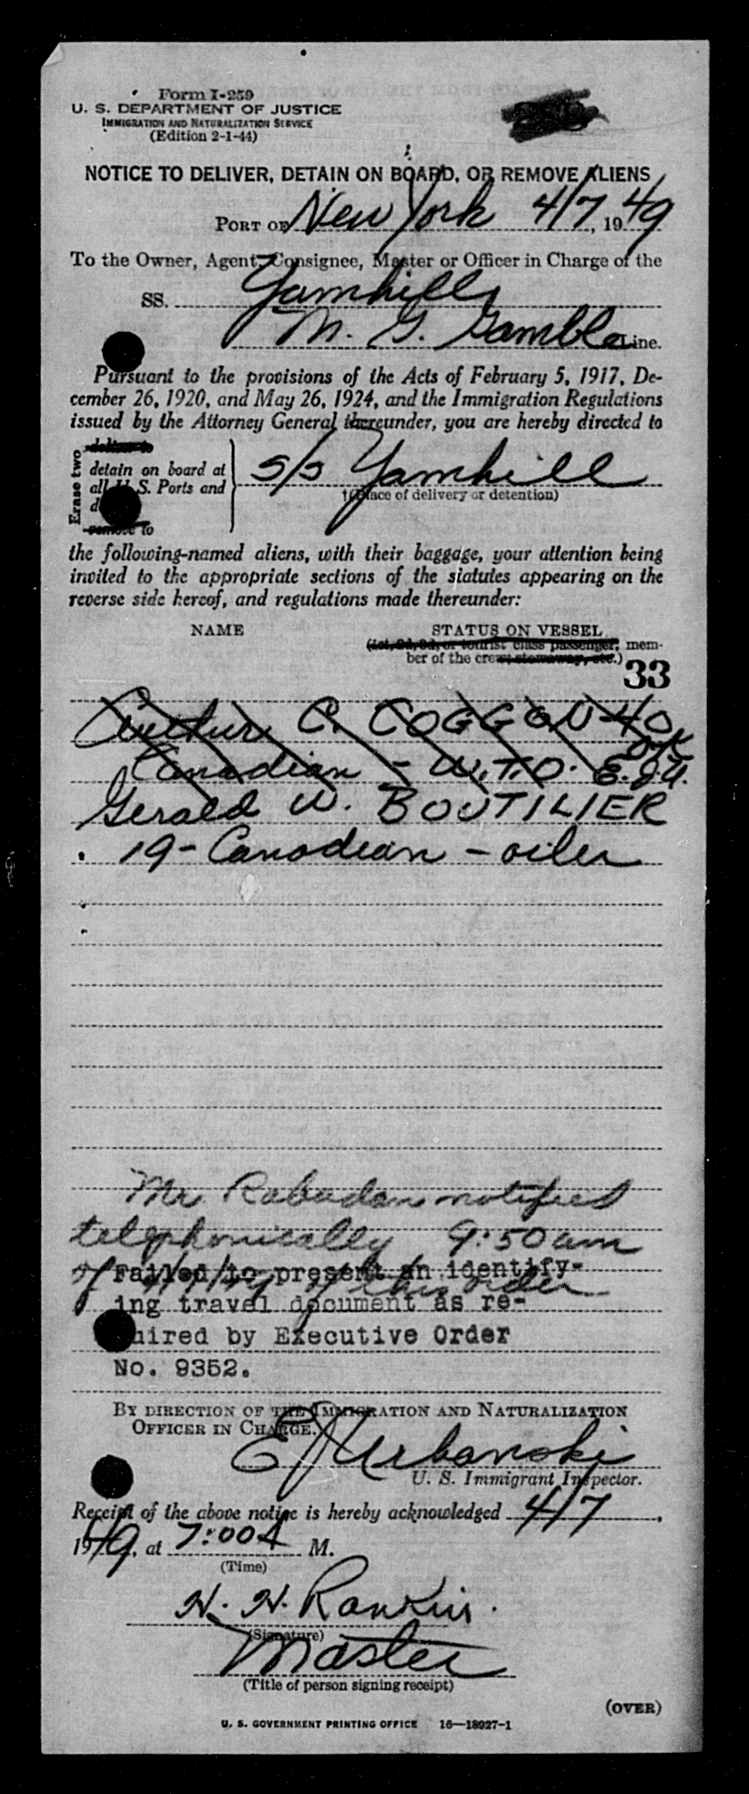 Form I-259
U. S. DEPARTMENT OF JUSTICE
IMMIGRATION AND NATURALIZATION SERVICE
(Edition 2-1-44)
NOTICE TO DELIVER, DETAIN ON BOARD, OR REMOVE ALIENS
PORT OF New York 4/7, 1949
To the Owner, Agent, Consignee, Master or Officer in Charge of the
SS. Yamhill,
M. G. Gamble Line.
Pursuant to the provisions of the Acts of February 5, 1917, De-
cember 26, 1920, and May 26, 1924, and the Immigration Regulations
issued by the Attorney General thereunder, you are hereby directed to
Erase two
deliver to
detain on board at
all U. S. Ports and
remove to
S/S Yamhill
†(Place of delivery or detention)
the following-named aliens, with their baggage, your attention being
invited to the appropriate sections of the statutes appearing on the
reverse side hereof, and regulations made thereunder:
NAME
STATUS ON VESSEL
(1st, 2d, 3d, or tourist class passenger, mem-
ber of the crew, stowaway, etc.)
33
Arthur C. COGGON - 40
Canadian - W.T.O. OK E.J.U.
Gerald W. BOUTILIER
19 - Canadian - oiler
Mr Rabadan notified
telephonically 9:50 am
of this order
Failed to present an identify-
ing travel document as re-
quired by Executive Order
No. 9352.
BY DIRECTION OF THE IMMIGRATION AND NATURALIZATION
OFFICER IN CHARGE.
E J Urbanski
U. S. Immigrant Inspector.
Receipt of the above notice is hereby acknowledged 4/7,
1949, at 7:00 A M.
(Time)
H. H. Rankin.
(Signature)
Master
(Title of person signing receipt)
(OVER)
U. S. GOVERNMENT PRINTING OFFICE 16—18927-1